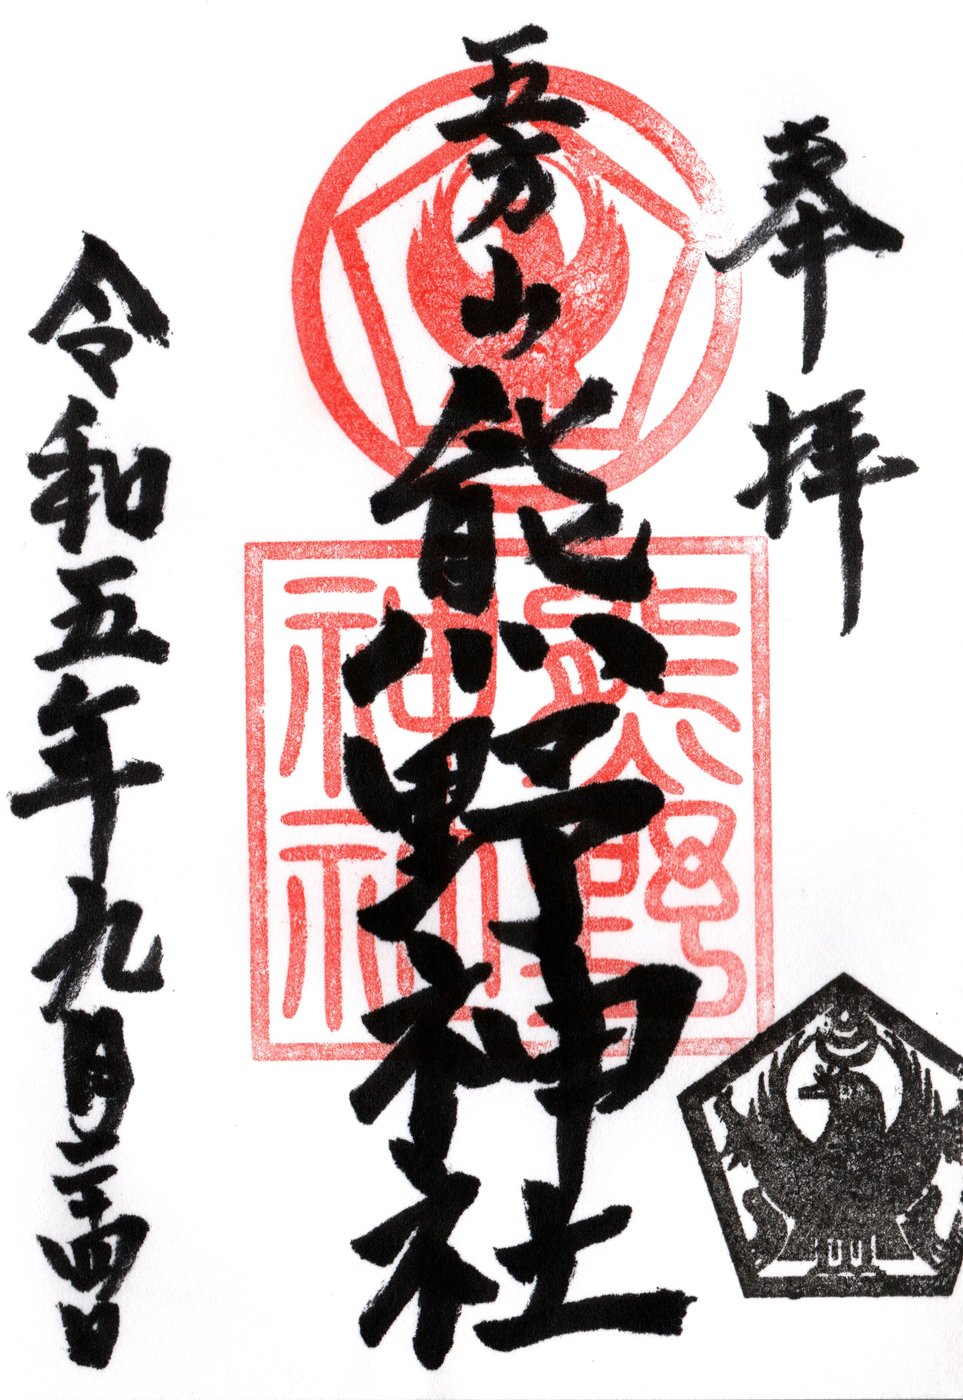 奉拝
五方山熊野神社
熊野
神社
令和五年九月二十四日